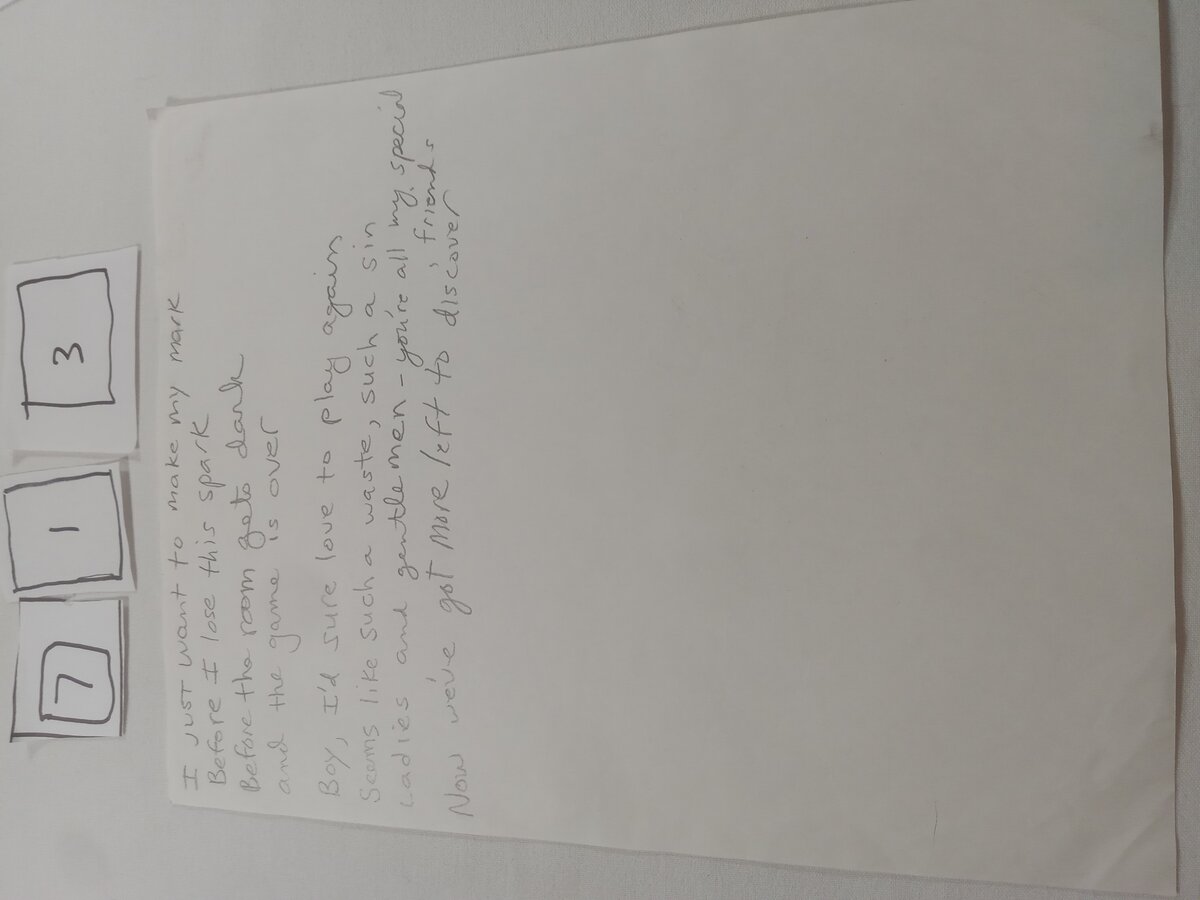 7 1 3
I just want to make my mark
Before I lose this spark
Before the room gets dark
and the game is over
Boy, I'd sure love to play again
Seems like such a waste, such a sin
Ladies and gentlemen - you're all my special
friends
Now we've got more left to discover